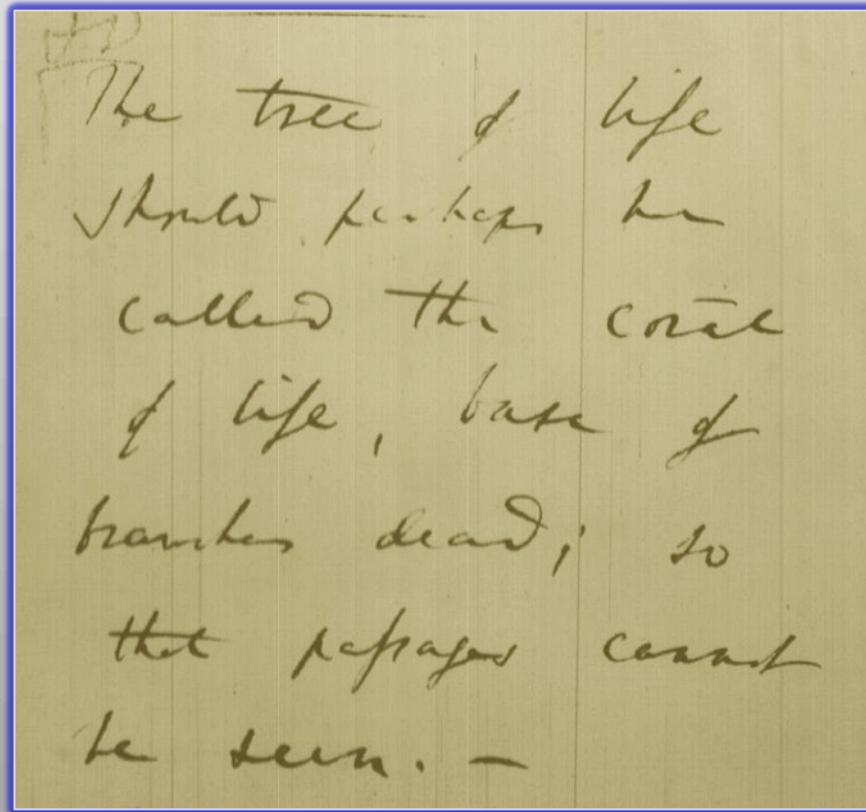 The tree of life
should perhaps be
called the coral
of life, base of
branches dead; so
that passages cannot
be seen. —